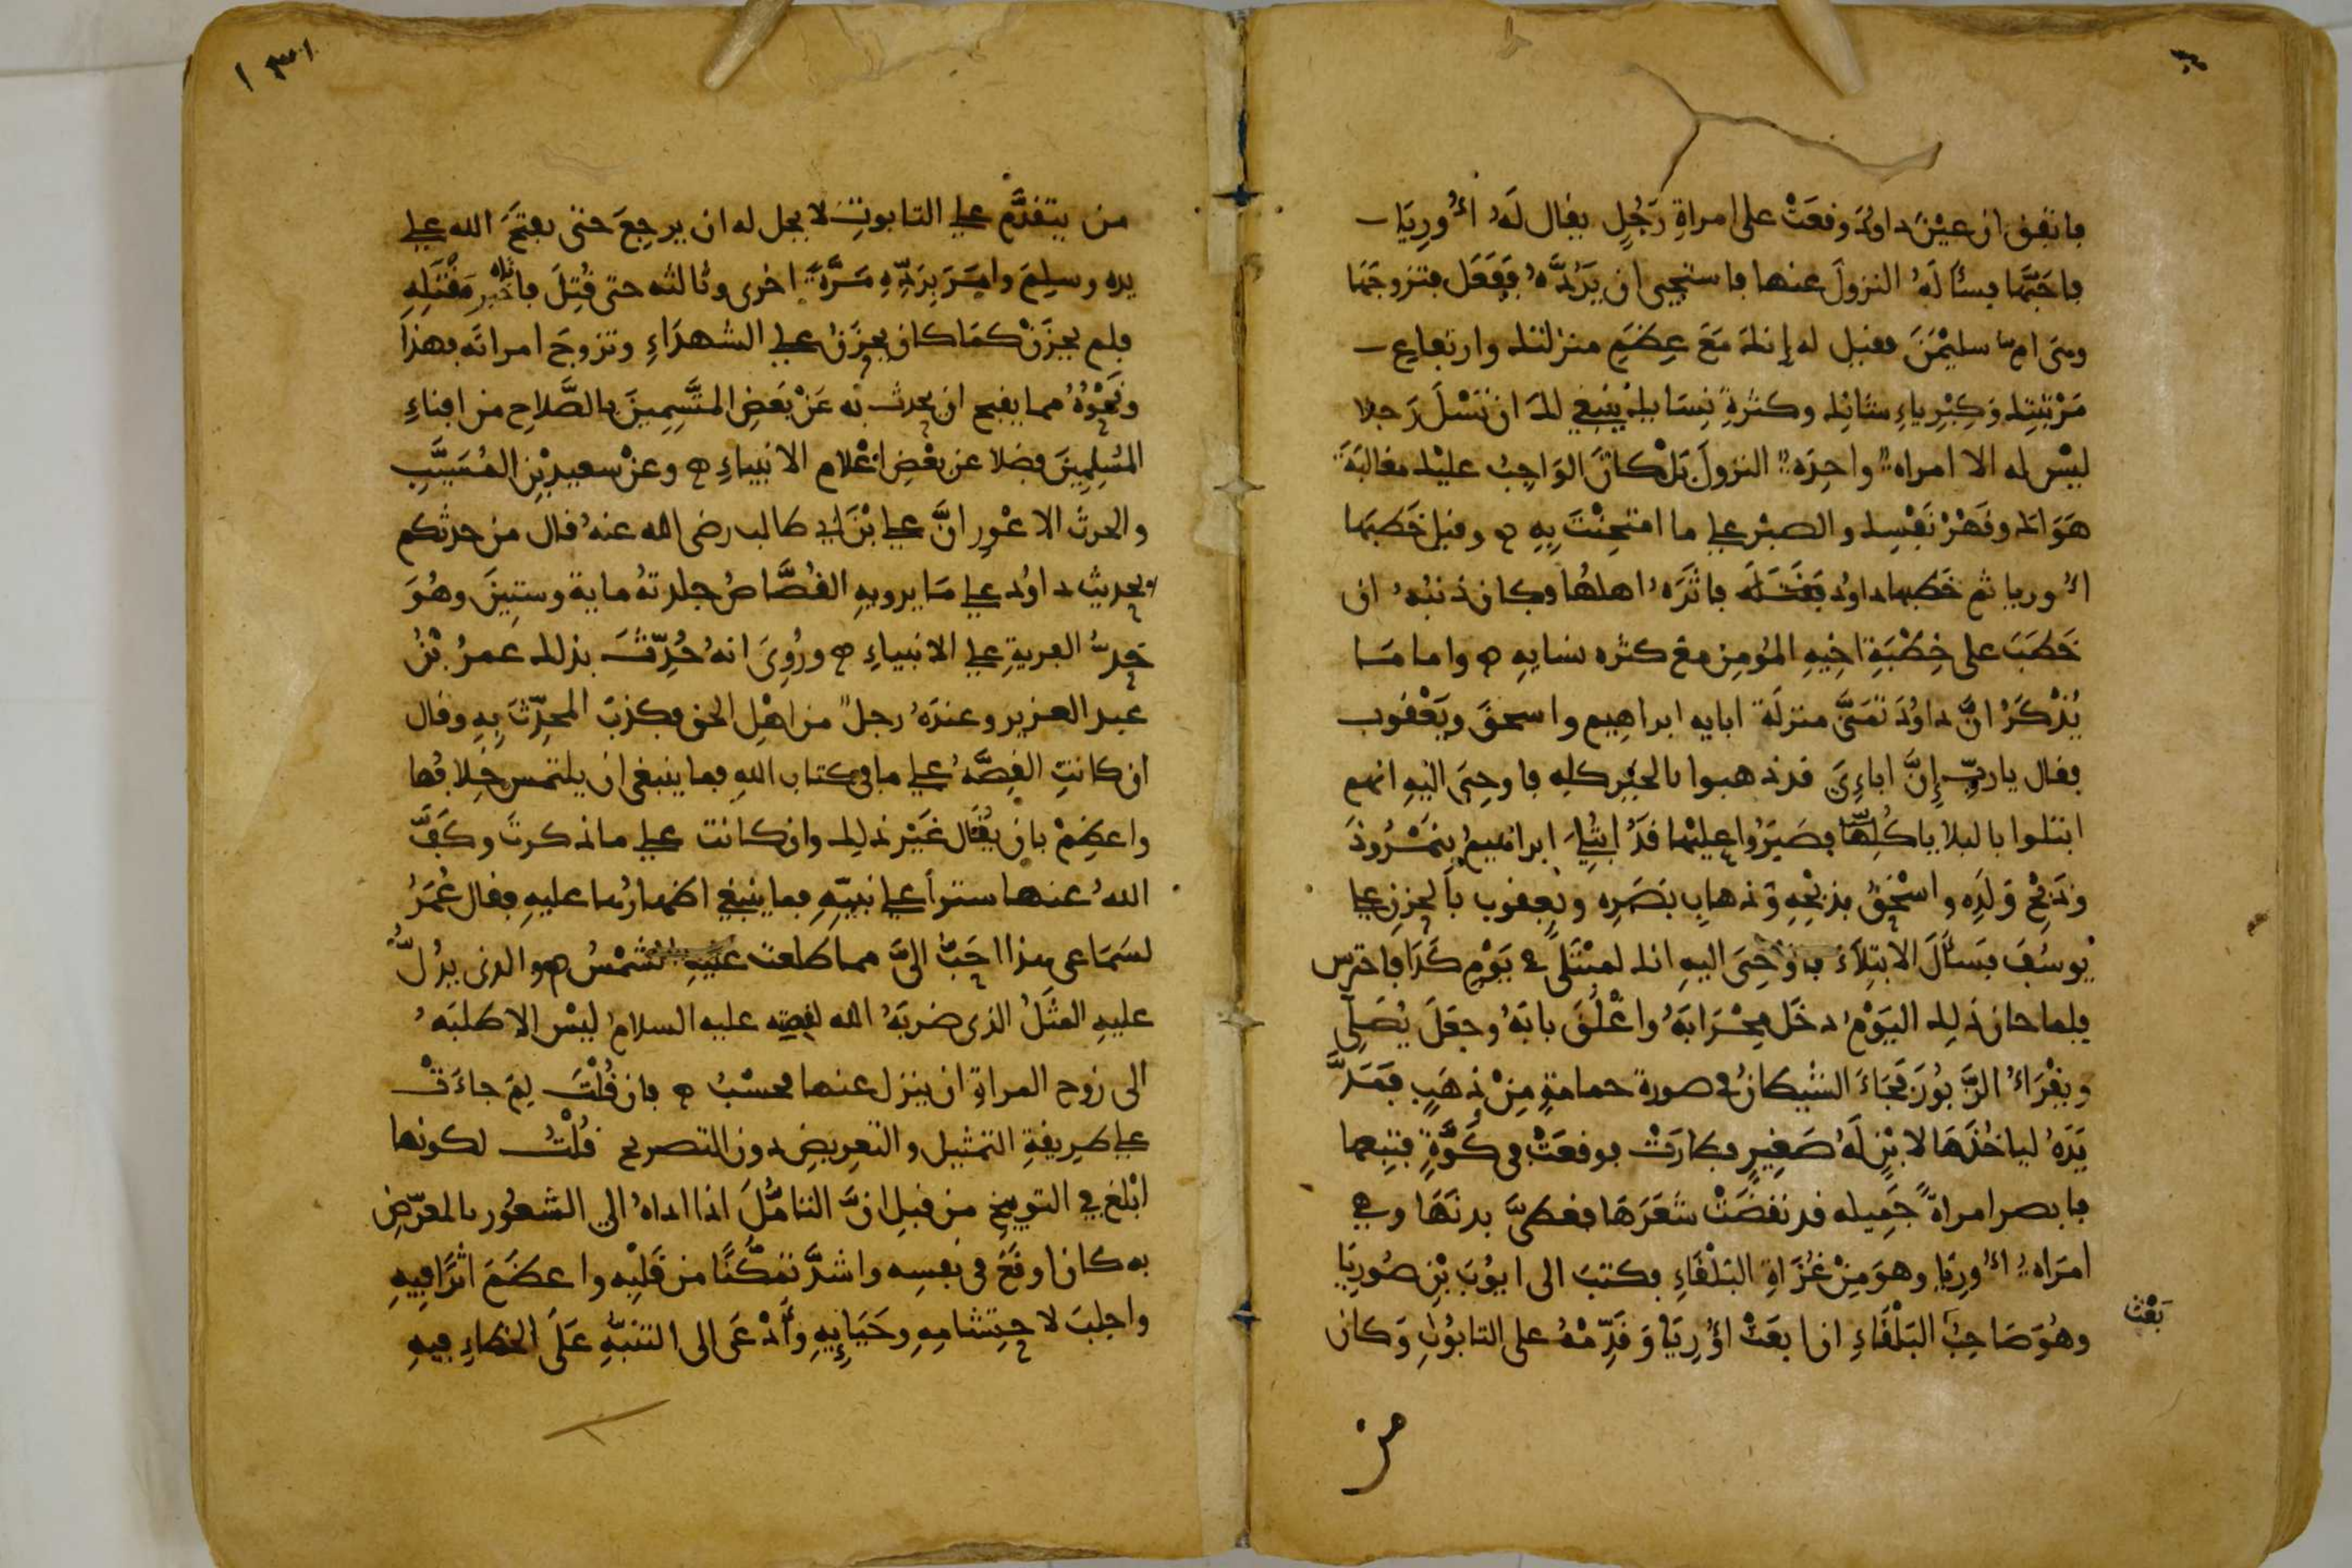 فاتفق ان عيْنَ داوُدَ وقعَتْ على امراةِ رَجُلٍ يقال لَهُ اُورِيَا
فاحَبَّها فسأَلَهُ النزولَ عنها فاستحيى ان يَرُدَّهُ ففَعَل فتزوجَهَا
وهى ام سليمٰنَ فقيل له إنك مَعَ عِظَمِ منزلتك وارتفاع
مَرْتَبَتِك وَكِبْرِياءِ شانِك وكثرةِ نِسَايك لم ينبغِ لكَ ان تَسْلَ رَجلا
ليْس له الا امراة واحِدَة النزولَ بَلْ كانَ الوَاجِبُ عليْك مغالبَةَ
هَوَاكَ وقَهْرْ نَفْسِك والصبْر على ما امتُحِنْتَ بِهِ ه وقيل خَطبَها
اُوريا ثم خَطبها داوُد فَقَتَلَه فاثَرَهُ اهلهُا فكان ذنبُهُ ان
خَطَبَ على خِطْبَةِ اخِيهِ المُومِن مع كثره نسايهِ ه واما مَا
يُذْكَرُ انَّ داوُدَ تمَنَّى منزلَةَ ابايه ابراهِيم واسحقَ ويَعْقُوب
فقال يا ربِّ إِنَّ اباءِىَ قد ذهبوا بالخيْر كلِه فاوحِىَ اليْهِ انهم
ابتلوا بالبلايا كُلِهَا فصَبَرُوا عليها قدُ ابتُلِىَ ابراهيمُ بنَمْرُوذَ
وذَبْحِ وَلَدِه واسْحٰقُ بذبْحِهِ وَذهابِ بَصَرِه ويعقوب بالحزنِ على
يُوسُفَ فسَأَلَ الابتِلَاءَ فاوْحِىَ اليهِ انك لمبْتَلًى فى يَوْمِ كَذَا فاحترس
فلما حان ذَلِك اليَوْمُ دخَل مِحْرَابَهُ واغْلَقَ بابَهُ وجعَلَ يُصَلِّى
ويقْرَاُ الزَّبُورَ فجَاءَ الشيطانُ فى صورة حمامةٍ مِنْ ذهَبٍ فمَدَّ
يَدَهُ لياخُذَهَا لابْنٍ لَهُ صَغِيرٍ فطارَتْ فوقعَتْ فى كَوَّةٍ فتبِعها
فابصر امراةً جَمِيله قد نفضَتْ شعَرَهَا فغطىَّ بدنَهَا وهى
امرَاةُ اُورِيَا وهوَ مِنْ غُزَاةِ البَلْقَاءِ فكتبَ الى ايوُبَ بْنِ صُورِيَا
وهُوَ صَاحِبُ البَلْقَاءِ ان ابعَثْ اوُرِيَا وَقَدِّمْهُ على التابُوتِ وَكان
بَعْث
من
١٣١
من يتقدَّم على التابوتِ لا يحل له ان يرجِعَ حتى يفتحَ الله على
يده وسلِمَ وامَرَ بِرَدِّهِ مَرَّةً اخرى وثالثه حتى قُتِلَ فاتاه خبر مَقْتَلِهِ
فلم يحزَنْ كمَا كان يحزَنُ على الشهدَاءِ وتزوجَ امراتَه فهذا
ونَحْوُهُ مما يقبح ان يحدث به عَنْ بَعْضِ المتَّسِمِينَ بالصَّلاح من افناءِ
المُسْلِمِينَ فضلا عن بَعْضِ اعْلام الانبياءِ ه وعنْ سعيدِ بْنِ المُسَيَّبِ
والحرث الاعْوِر انَّ على ابْنَ ابى طالب رضى الله عنهُ قال من حدثكم
بحديث داوُد على مَا يرويهِ القُصَّاصُ جلدتهُ ماية وستِينَ وهُوَ
حَدُّ الفريةِ على الانبياءِ ه ورُوِىَ انهُ حُدِّثَ بذلك عمرُ بْنُ
عبد العزيز وعندَهُ رجل من اهْلِ الحق فكذبَ المحدِّثَ بِهِ وقال
ان كانتِ القِصَّهُ على ما فى كتاب اللهِ فما ينبغى ان يلتمس خِلافُها
واعظِمْ بان يُقَال غَيْر ذلِك وان كانت على ما ذكرتَ وكَفَّ
اللهُ عنها ستراً على نبيّهِ فما ينبغِى اظهارُها عليهِ فقال عُمَرُ
لسَمَاعى هذا احَبُّ الىَّ مما طلعت عليْهِ الشمْسُ ه والذى يدُلُّ
عليهِ المثَلُ الذى ضربَهُ الله لقصته عليه السلام ليْس الا طلبَهُ
الى زوج المراةِ ان ينزل عنها فحسْبُ ه فان قُلْتَ لِمَ جاءَتْ
على طريقةِ التمثيل والتعرِيض دون التصريح قُلْتُ لكونها
ابْلغ فِى التوبيخِ مِن قبلِ انَّ التامُّلَ اذا اداهُ الى الشعُور بالمعرَّضِ
به كان اوقَعَ فى نفسِه واشدَّ تمَكُّنًا من قَلْبِه واعظَمَ اثرًا فِيهِ
واجلبَ لاحتِشامِهِ وحَيَايِهِ وَأَدْعَى الى التنَبُّهِ عَلَى الخطاءِ فِيهِ